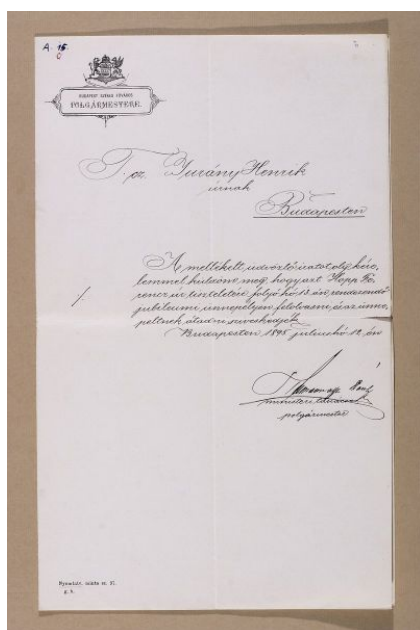 A. 15.
BUDAPEST SZÉKES FŐVÁROS
POLGÁRMESTERE.
T. cz. Jurány Henrik
úrnak
Budapesten
A mellékelt üdvözlő iratot oly kére-
lemmel küldöm meg, hogy azt Hopp Fe-
rencz úr tiszteletére folyó hó 13-án rendezendő
jubileumi ünnepélyen felolvasni és az ünne-
peltnek átadni sziveskedjék
Budapesten 1895 július hó 12-én
polgármester
Nyomtatv. minta sz. 37.